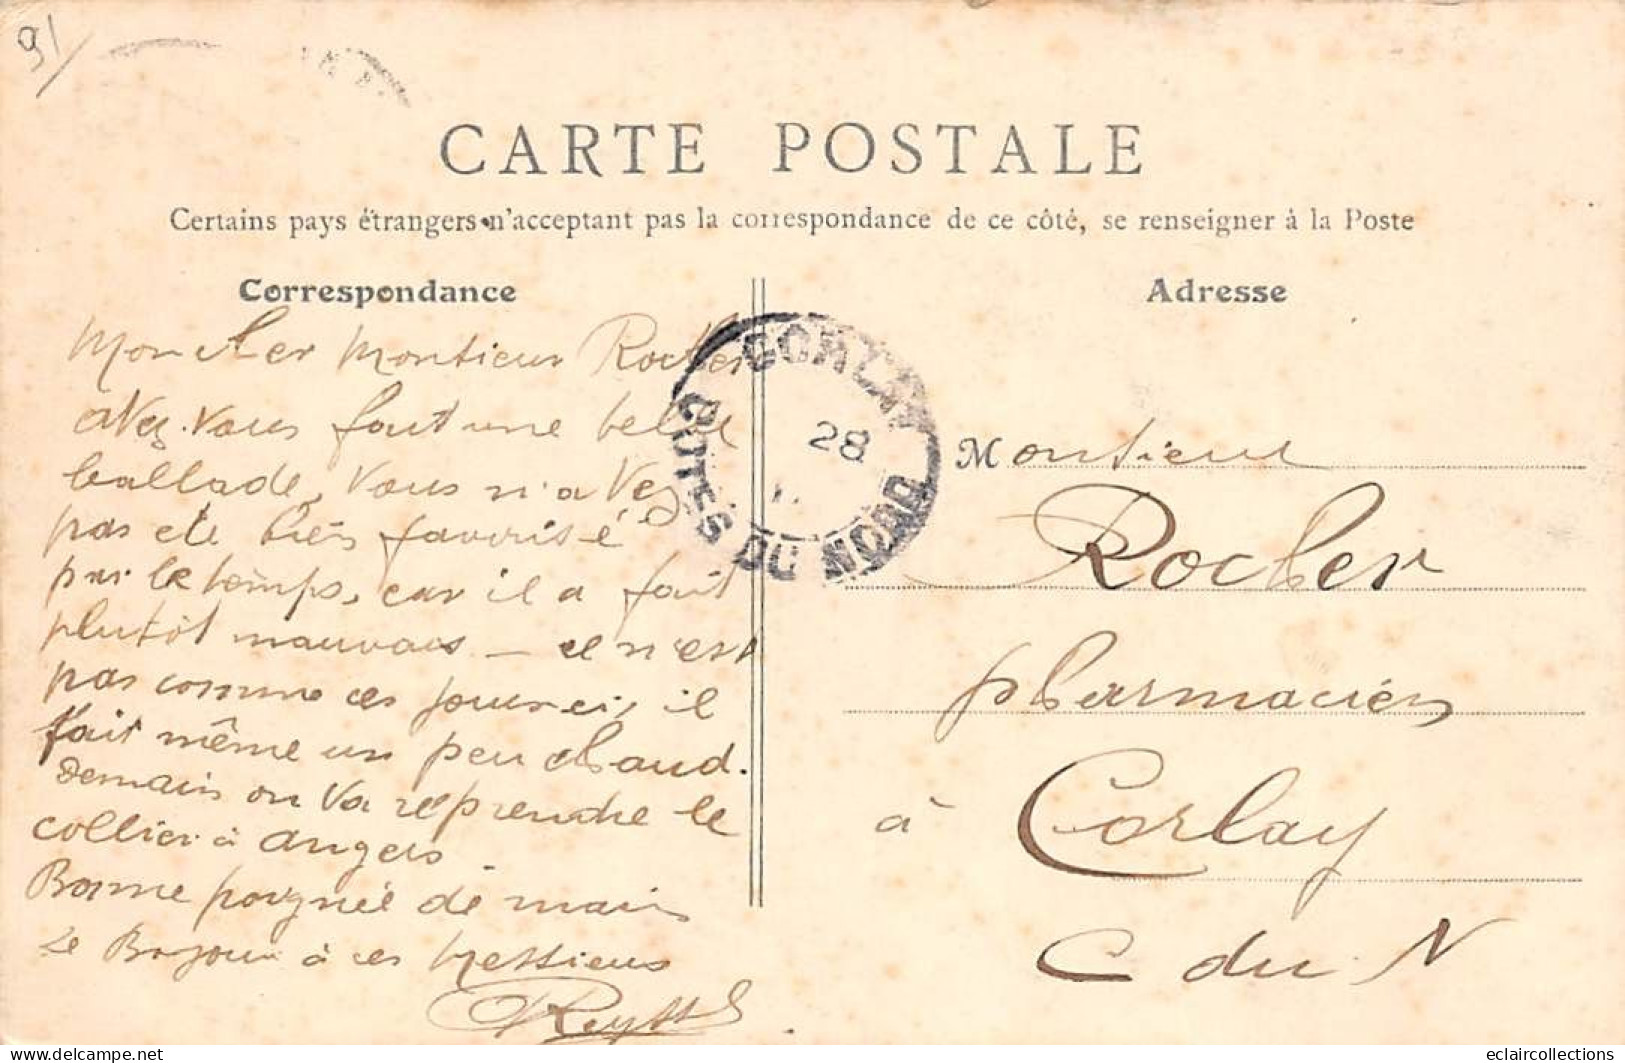 91
CARTE POSTALE
Certains pays étrangers n'acceptent pas la correspondance de ce côté, se renseigner à la Poste
Correspondance
Adresse
Mon cher Monsieur Rocher
avez-vous fait une belle
ballade, vous n'avez
pas eté bien favorisé
par le temps, car il a fait
plutôt mauvais - ce n'est
pas comme ces jours ci, il
fait même un peu chaud.
Demain on va reprendre le
collier à Angers.
Bonne poignée de main
Le Bonjour à ces Messieurs
CORLAY
28
COTES DU NORD
Monsieur
Rocher
pharmacien
à Corlay
C du N
eclaircollections